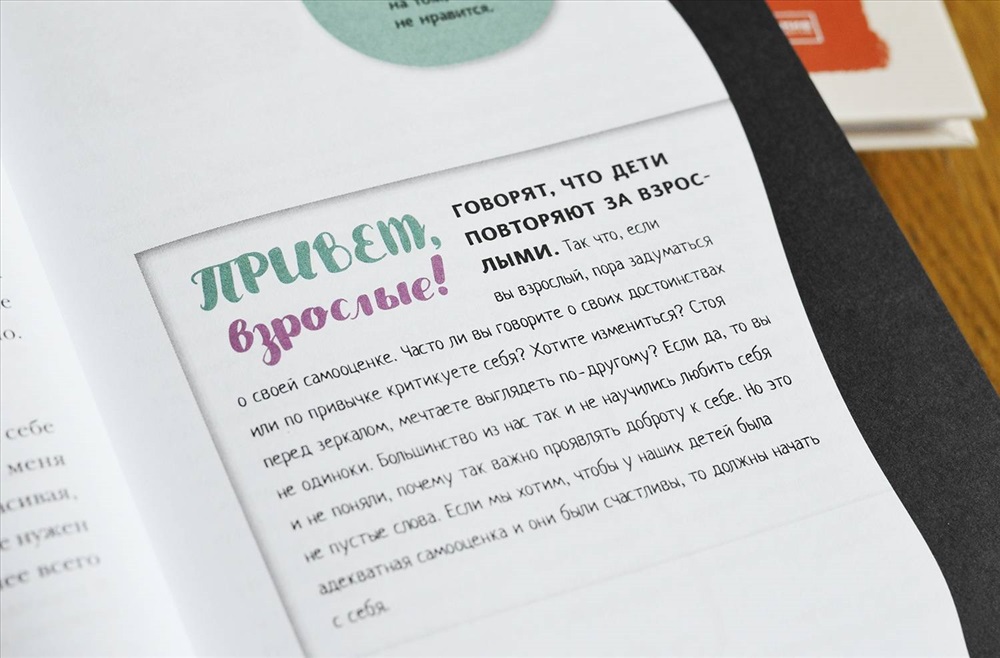 на том,
не нравится.
ПРИВЕТ,
взрослые!
ГОВОРЯТ, ЧТО ДЕТИ
ПОВТОРЯЮТ ЗА ВЗРОС-
ЛЫМИ. Так что, если
вы взрослый, пора задуматься
о своей самооценке. Часто ли вы говорите о своих достоинствах
или по привычке критикуете себя? Хотите измениться? Стоя
перед зеркалом, мечтаете выглядеть по-другому? Если да, то вы
не одиноки. Большинство из нас так и не научились любить себя
и не поняли, почему так важно проявлять доброту к себе. Но это
не пустые слова. Если мы хотим, чтобы у наших детей была
адекватная самооценка и они были счастливы, то должны начать
с себя.
себе
меня
нужен
всего